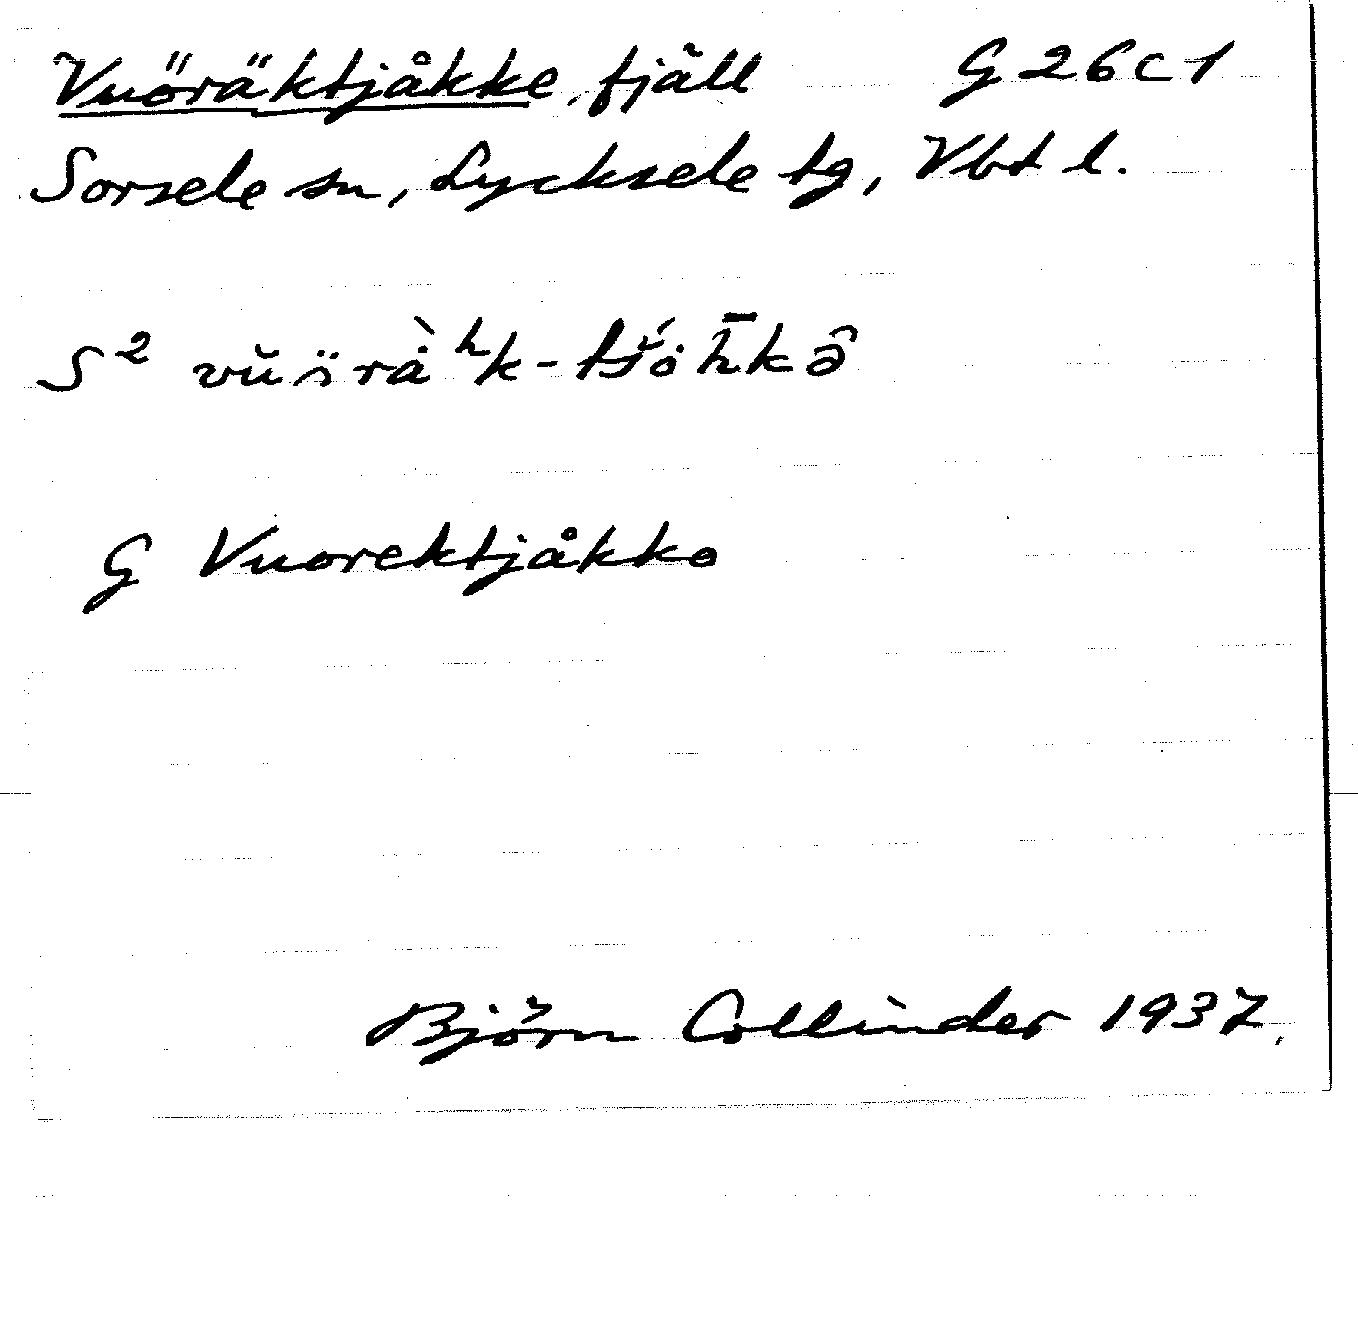 Vuöräktjåkke, fjäll G 26 c 1
Sorsele sn, Lycksele tg, Vbt l.
S²
G Vuorektjåkko
Björn Collinder 1937.